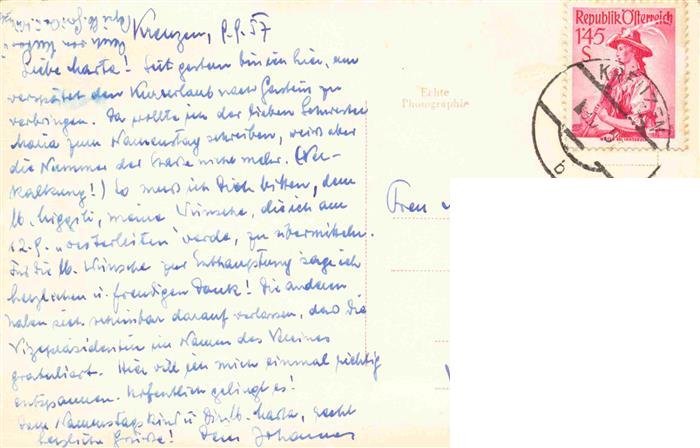 Kreuzen, 9.9.57
Liebe Marta! Seit gestern bin ich hier, um
verspätet den Kururlaub nach Gastein zu
verbringen. Da wollte ich der lieben Schwester
Maria zum Namenstag schreiben, weiss aber
die Nummer der Gasse nicht mehr. (Ver-
kalkung!) So muss ich Dich bitten, dem
lb. meine Wünsche, die ich am
12.9. "verden, zu übermitteln.
Für die lb. Wünsche zur Enthauptung sage ich
herzlichen u. freudigen Dank! Die anderen
haben sich scheinbar darauf verlassen, dass die
Vizepräsidentin im Namen des Vereines
gratuliert. Hier will ich mich einmal richtig
entspannen. Hoffentlich gelingt es!
Dem Namenstagskind u. Dir, lb. Marta, recht
herzliche Grüsse! Dein Johannes
Echte
Photographie
Frau
Republik Österreich
145
S
KREUZEN
b